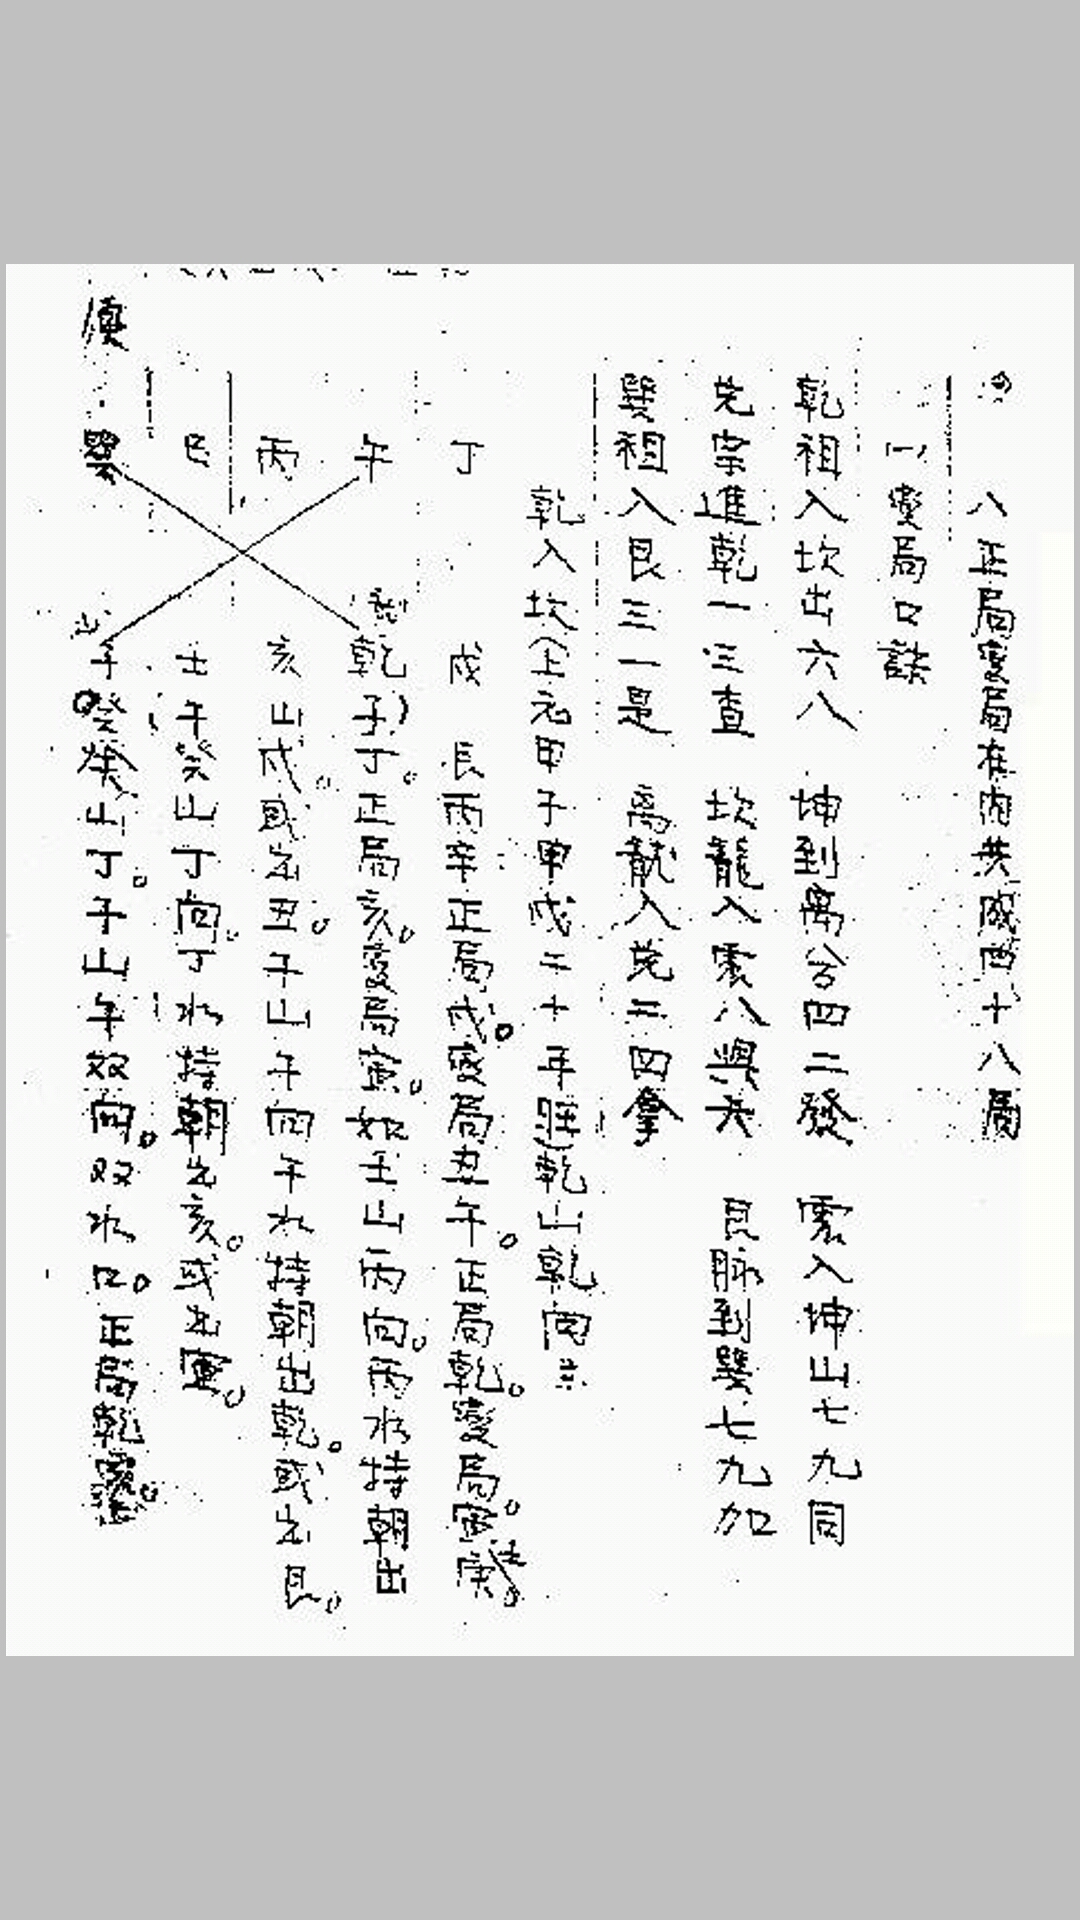 八正局變局在內共成四十八局
(一)變局口訣
乾祖入坎出六八 坤到離谷四二發 震入坤山七九同
兌宗進乾一三查 坎龍入震八與六 艮脉到巽七九加
巽祖入艮三一是 離龍入兌三四拿
乾入坎(上元甲子甲戌二十年涯乾山乾向
丁 戌 艮丙辛正局戌變局丑午正局乾。變局寅庚
午 乾子)丁。正局亥。變局寅。如壬山丙向。丙水特朝出
丙 亥山戌。或出丑。子山午向午水特朝出乾。或出艮。
巳 壬(午癸山丁向。丁水特朝出亥。或出寅。
巽 子癸 山丁。子山午双向。双水口。正局乾變